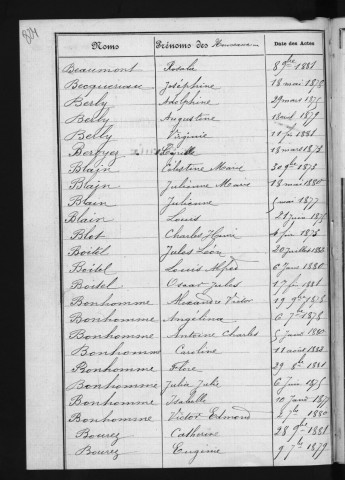 824
Noms Prénoms des Nouveaux Date des Actes
Beaumont Rosalie 8 9bre 1881
Becquereau Joséphine 18 mai 1878
Berly Adolphine 29 mars 1875
Berly Augustine 1879
Berly Virginie 11 1881
Camille 18 mars 1878
Blain Célestine Marie 30 9bre 1873
Blain Julienne Marie 18 mai 1880
Blain Julienne 5 mai 1877
Blain Louis 21 juin
Blot Charles Henri 4 fév 1875
Boitel Jules Léon 20 juillet
Boitel Louis Alfred 6 Janv 1880
Boitel Oscar Jules 17 fév 1881
Bonhomme Alexandre Victor 19 9bre 1878
Bonhomme Angélina 6 7bre 1878
Bonhomme Antoine Charles 5 Janv 1880
Bonhomme Caroline 11 août
Bonhomme Flore 29 8bre 1881
Bonhomme Julia Julie 6 1875
Bonhomme Isabelle 10 Janv
Bonhomme Victor Edmond 8 7bre 1880
Bourez Catherine 28 9bre 1881
Bourez Eugénie 9 7bre 1879